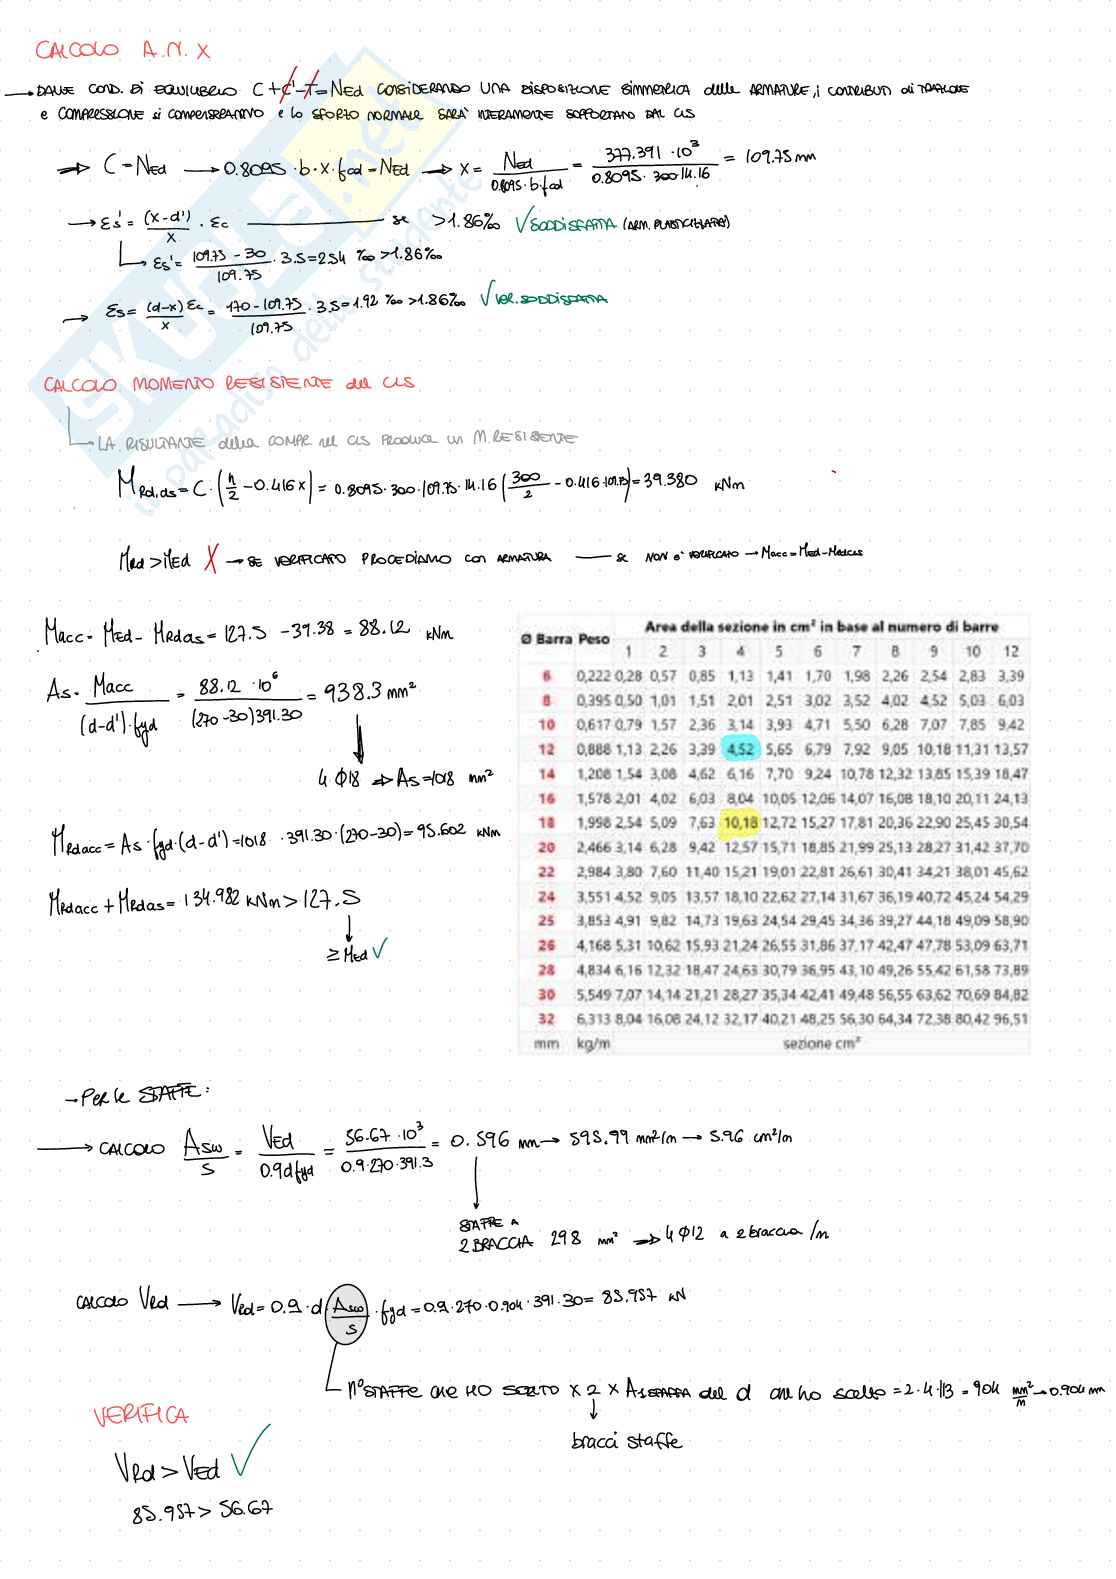 CALCOLO A.N. X
→ DALLE COND. DI EQUILIBRIO C+C'-T=NEd CONSIDERANDO UNA DISPOSIZIONE SIMMETRICA delle ARMATURE, i CONTRIBUTI di TRAZIONE
e COMPRESSIONE si COMPENSERANNO e lo SFORZO NORMALE SARA' INTERAMENTE SOPPORTATO DAL CLS
⇒ C = NEd → 0.8095·b·x·fcd = NEd → x = NEd / 0.8095·b·fcd = 377.391·10³ / 0.8095·300·14.16 = 109.75 mm
→ εs' = (x-d') / x · εc — se >1.86‰ √ SODDISFATTA (ARM. PLASTICIZZATA)
εs' = 109.75 - 30 / 109.75 · 3.5 = 2.54 ‰ > 1.86‰
→ εs = (d-x) / x εc = 170-109.75 / 109.75 · 3.5 = 1.92 ‰ > 1.86‰ √ VER. SODDISFATTA
CALCOLO MOMENTO RESISTENTE del CLS
→ LA RISULTANTE della COMPR. nel CLS PRODUCE un M. RESISTENTE
MRd,cls = C·(h/2 - 0.416x) = 0.8095·300·109.75·14.16 (300/2 - 0.416·109.75) = 39.380 kNm
MRd > MEd X → SE VERIFICATO PROCEDIAMO con ARMATURA — se NON è VERIFICATO → Macc = MEd - MRdcls
Macc = MEd - MRdcls = 127.5 - 39.38 = 88.12 kNm
As = Macc / (d-d')·fyd = 88.12·10⁶ / (270-30)391.30 = 938.3 mm²
4 Φ18 ⇒ As = 1018 mm²
MRdacc = As·fyd·(d-d') = 1018·391.30·(270-30) = 95.602 kNm
MRdacc + MRdcls = 134.982 kNm > 127.5
≥ MEd √
Area della sezione in cm² in base al numero di barre
Ø Barra Peso 1 2 3 4 5 6 7 8 9 10 12
6 0,222 0,28 0,57 0,85 1,13 1,41 1,70 1,98 2,26 2,54 2,83 3,39
8 0,395 0,50 1,01 1,51 2,01 2,51 3,02 3,52 4,02 4,52 5,03 6,03
10 0,617 0,79 1,57 2,36 3,14 3,93 4,71 5,50 6,28 7,07 7,85 9,42
12 0,888 1,13 2,26 3,39 4,52 5,65 6,79 7,92 9,05 10,18 11,31 13,57
14 1,208 1,54 3,08 4,62 6,16 7,70 9,24 10,78 12,32 13,85 15,39 18,47
16 1,578 2,01 4,02 6,03 8,04 10,05 12,06 14,07 16,08 18,10 20,11 24,13
18 1,998 2,54 5,09 7,63 10,18 12,72 15,27 17,81 20,36 22,90 25,45 30,54
20 2,466 3,14 6,28 9,42 12,57 15,71 18,85 21,99 25,13 28,27 31,42 37,70
22 2,984 3,80 7,60 11,40 15,21 19,01 22,81 26,61 30,41 34,21 38,01 45,62
24 3,551 4,52 9,05 13,57 18,10 22,62 27,14 31,67 36,19 40,72 45,24 54,29
25 3,853 4,91 9,82 14,73 19,63 24,54 29,45 34,36 39,27 44,18 49,09 58,90
26 4,168 5,31 10,62 15,93 21,24 26,55 31,86 37,17 42,47 47,78 53,09 63,71
28 4,834 6,16 12,32 18,47 24,63 30,79 36,95 43,10 49,26 55,42 61,58 73,89
30 5,549 7,07 14,14 21,21 28,27 35,34 42,41 49,48 56,55 63,62 70,69 84,82
32 6,313 8,04 16,08 24,12 32,17 40,21 48,25 56,30 64,34 72,38 80,42 96,51
mm kg/m sezione cm²
→ Per le STAFFE:
→ CALCOLO Asw / s = VEd / 0.9dfyd = 56.67·10³ / 0.9·270·391.3 = 0.596 mm → 595.99 mm²/m → 5.96 cm²/m
STAFFE A
2 BRACCIA 298 mm² ⇒ 4 Φ12 a 2 braccia /m
CALCOLO VRd → VRd = 0.9·d Asw / s · fyd = 0.9·270·0.904·391.30 = 85.957 kN
n° STAFFE che HO SCELTO x 2 x A1STAFFA del d che ho scelto = 2·4·113 = 904 mm²/m → 0.904 mm
bracci staffe
VERIFICA
VRd > VEd √
85.957 > 56.67
SKUOLA.net
il paradiso dello studente